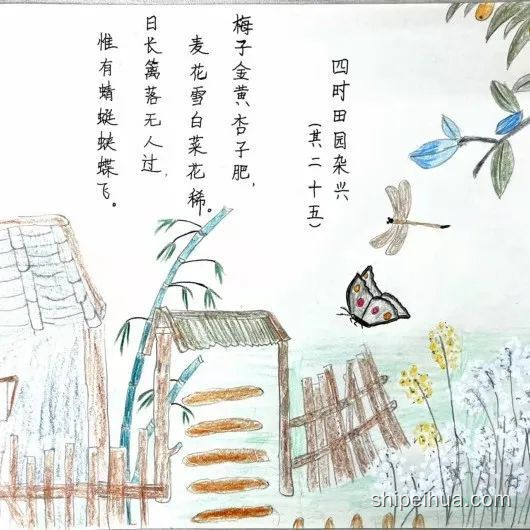 四时田园杂兴
（其二十五）
梅子金黄杏子肥，
麦花雪白菜花稀。
日长篱落无人过，
惟有蜻蜓蛱蝶飞。
shipeihua.com